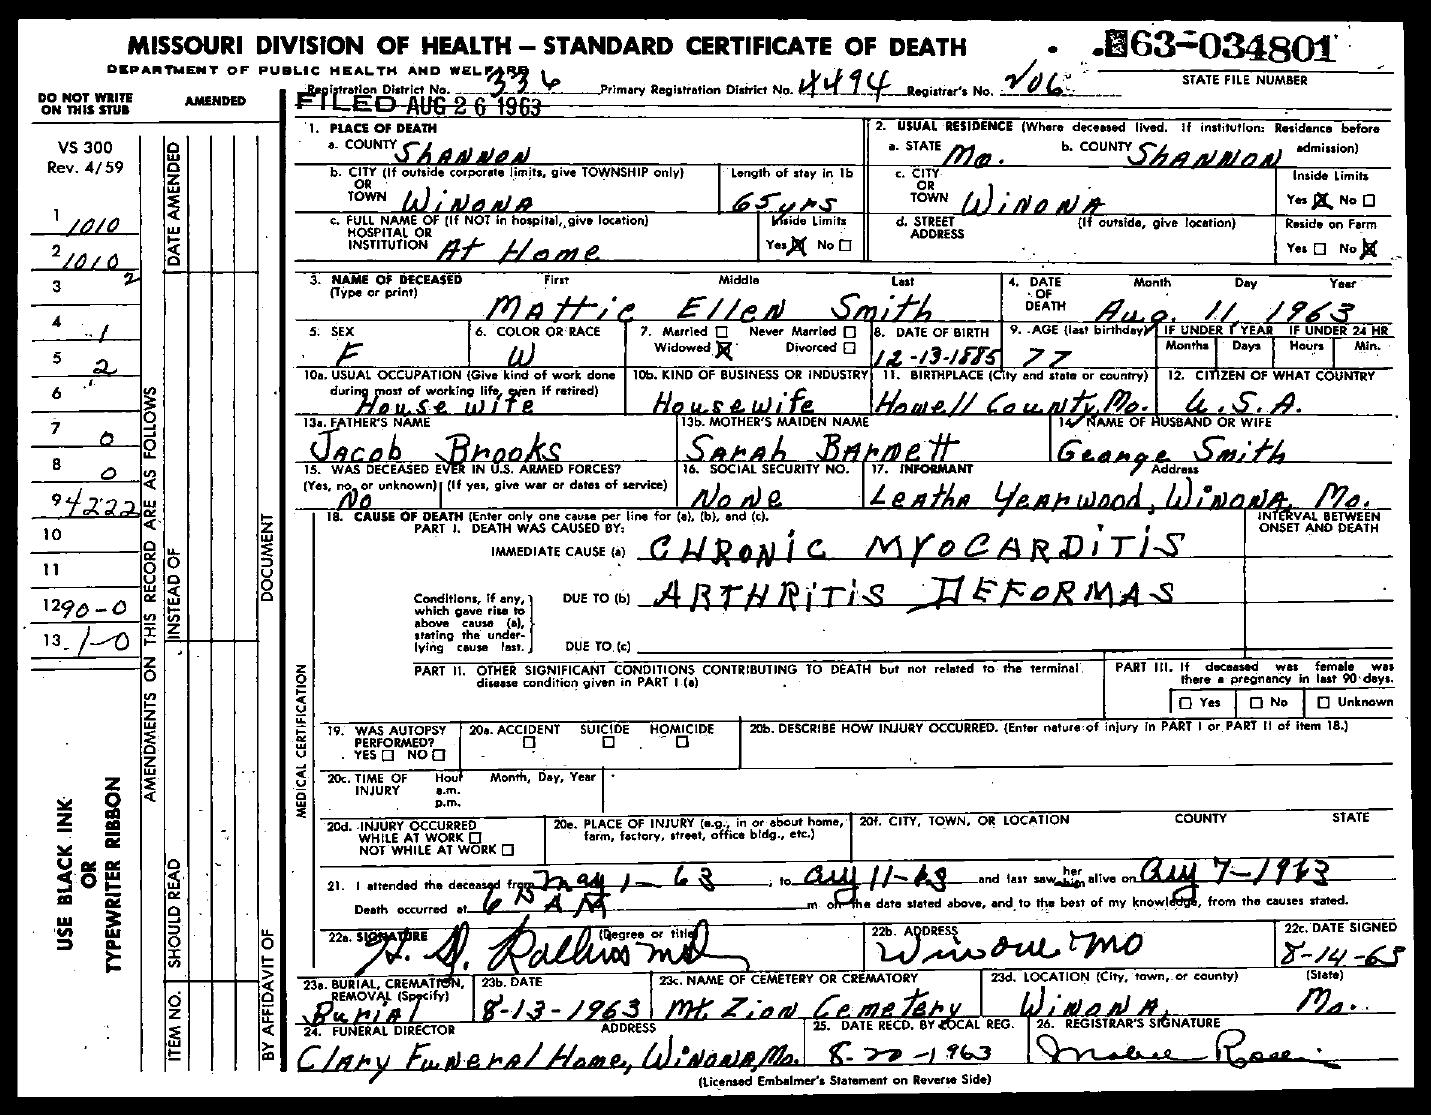 MISSOURI DIVISION OF HEALTH – STANDARD CERTIFICATE OF DEATH
63-034801
DEPARTMENT OF PUBLIC HEALTH AND WELFARE
STATE FILE NUMBER
Registration District No. 336 Primary Registration District No. 4494 Registrar's No. 206
FILED AUG 26 1963
DO NOT WRITE ON THIS STUB
AMENDED
VS 300
Rev. 4/59
1 1010
2 1010
3 2
4 1
5 2
6
7 0
8 0
9 4222
10
11
12 90-0
13 1-0
USE BLACK INK
OR
TYPEWRITER RIBBON
AMENDMENTS ON THIS RECORD ARE AS FOLLOWS
DATE AMENDED
INSTEAD OF
SHOULD READ
ITEM NO.
DOCUMENT
BY AFFIDAVIT OF
1. PLACE OF DEATH
a. COUNTY Shannon
2. USUAL RESIDENCE (Where deceased lived. If institution: Residence before admission)
a. STATE Mo. b. COUNTY Shannon
b. CITY (If outside corporate limits, give TOWNSHIP only) OR TOWN Winona
Length of stay in 1b 65 yrs
c. CITY OR TOWN Winona
Inside Limits
Yes No
c. FULL NAME OF (If NOT in hospital, give location) HOSPITAL OR INSTITUTION At Home
Inside Limits
Yes No
d. STREET ADDRESS (If outside, give location)
Reside on Farm
Yes No
3. NAME OF DECEASED (Type or print) First Middle Last
Mattie Ellen Smith
4. DATE OF DEATH Month Day Year
Aug. 11, 1963
5. SEX F
6. COLOR OR RACE W
7. Married Never Married
Widowed Divorced
8. DATE OF BIRTH 12-13-1885
9. AGE (last birthday) 77
IF UNDER 1 YEAR IF UNDER 24 HR
Months Days Hours Min.
10a. USUAL OCCUPATION (Give kind of work done during most of working life, even if retired) House wife
10b. KIND OF BUSINESS OR INDUSTRY Housewife
11. BIRTHPLACE (City and state or country) Howell County, Mo.
12. CITIZEN OF WHAT COUNTRY U.S.A.
13a. FATHER'S NAME Jacob Brooks
13b. MOTHER'S MAIDEN NAME Sarah Barnett
14. NAME OF HUSBAND OR WIFE George Smith
15. WAS DECEASED EVER IN U.S. ARMED FORCES?
(Yes, no, or unknown) (If yes, give war or dates of service)
No
16. SOCIAL SECURITY NO. None
17. INFORMANT Address
Leatha Yearwood, Winona, Mo.
MEDICAL CERTIFICATION
18. CAUSE OF DEATH (Enter only one cause per line for (a), (b), and (c).
PART I. DEATH WAS CAUSED BY:
INTERVAL BETWEEN ONSET AND DEATH
IMMEDIATE CAUSE (a) CHRONIC MYOCARDITIS
Conditions, if any, which gave rise to above cause (a), stating the underlying cause last.
DUE TO (b) ARTHRITIS DEFORMAS
DUE TO (c)
PART II. OTHER SIGNIFICANT CONDITIONS CONTRIBUTING TO DEATH but not related to the terminal disease condition given in PART I (a)
PART III. If deceased was female was there a pregnancy in last 90 days.
Yes No Unknown
19. WAS AUTOPSY PERFORMED?
YES NO
20a. ACCIDENT SUICIDE HOMICIDE
20b. DESCRIBE HOW INJURY OCCURRED. (Enter nature of injury in PART I or PART II of item 18.)
20c. TIME OF INJURY Hour a.m. p.m. Month, Day, Year
20d. INJURY OCCURRED
WHILE AT WORK
NOT WHILE AT WORK
20e. PLACE OF INJURY (e.g., in or about home, farm, factory, street, office bldg., etc.)
20f. CITY, TOWN, OR LOCATION COUNTY STATE
21. I attended the deceased from May 1-63, to Aug 11-63 and last saw her him alive on Aug 7-1963
Death occurred at 6 AM m on the date stated above, and to the best of my knowledge, from the causes stated.
22a. SIGNATURE (Degree or title)
22b. ADDRESS Winona Mo
22c. DATE SIGNED 8-14-63
23a. BURIAL, CREMATION, REMOVAL (Specify) Burial
23b. DATE 8-13-1963
23c. NAME OF CEMETERY OR CREMATORY Mt. Zion Cemetery
23d. LOCATION (City, town, or county) (State)
Winona, Mo.
24. FUNERAL DIRECTOR ADDRESS
Clary Funeral Home, Winona, Mo.
25. DATE RECD. BY LOCAL REG. 8-20-1963
26. REGISTRAR'S SIGNATURE
(Licensed Embalmer's Statement on Reverse Side)